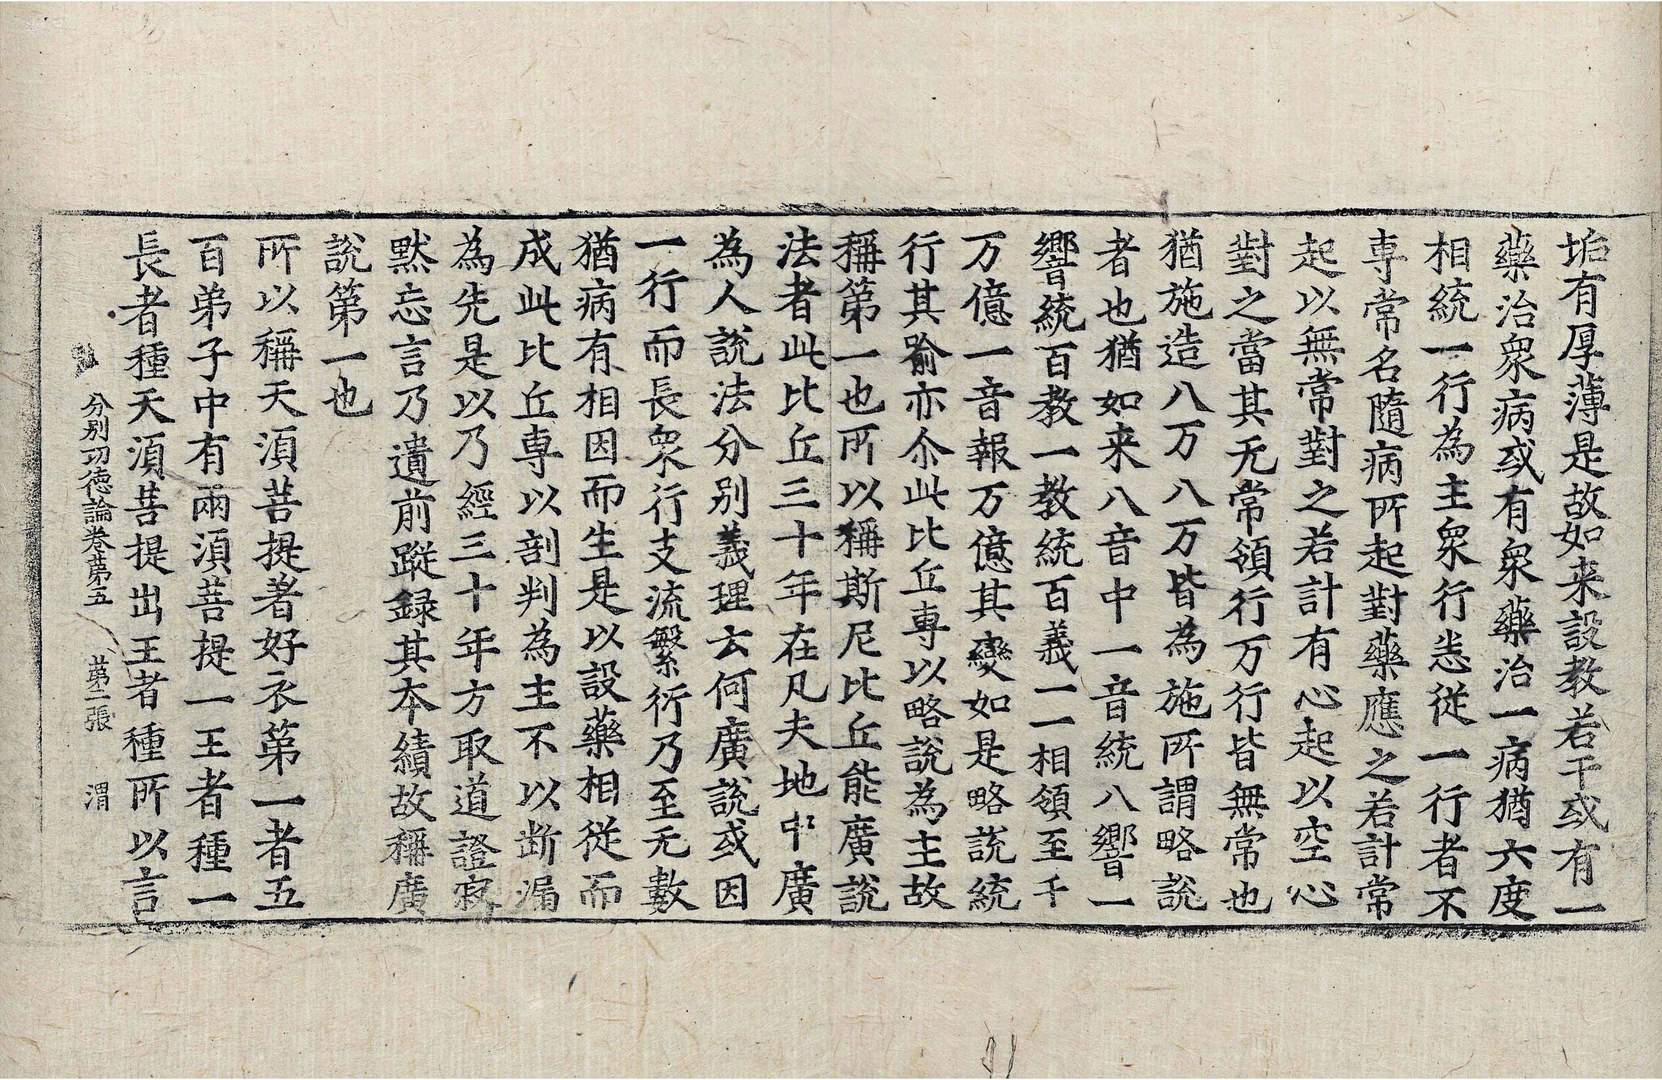 垢有厚薄是故如来設教若干或有一
藥治衆病或有衆藥治一病猶六度
相統一行為主衆行恙從一行者不
専常名隨病所起對藥應之若計常
起以無常對之若計有心起以空心
對之當其无常領行万行皆無常也
猶施造八万八万皆為施所謂略說
者也猶如来八音中一音統八響一
響統百教一教統百義一一相領至千
万億一音報万億其變如是略說統
行其喻亦尒此比丘專以略說為主故
稱第一也所以稱斯尼比丘能廣說
法者此比丘三十年在凡夫地中廣
為人說法分別義理云何廣說或因
一行而長衆行支流繁衍乃至无數
猶病有相因而生是以設藥相從而
成此比丘専以剖判為主不以断漏
為先是以乃經三十年方取道證寂
黙忘言乃遺前蹤録其本績故稱廣
說第一也
所以稱天湏菩提著好衣第一者五
百弟子中有兩湏菩提一王者種一
長者種天湏菩提出王者種所以言
分別功徳論卷第五 第二張 渭